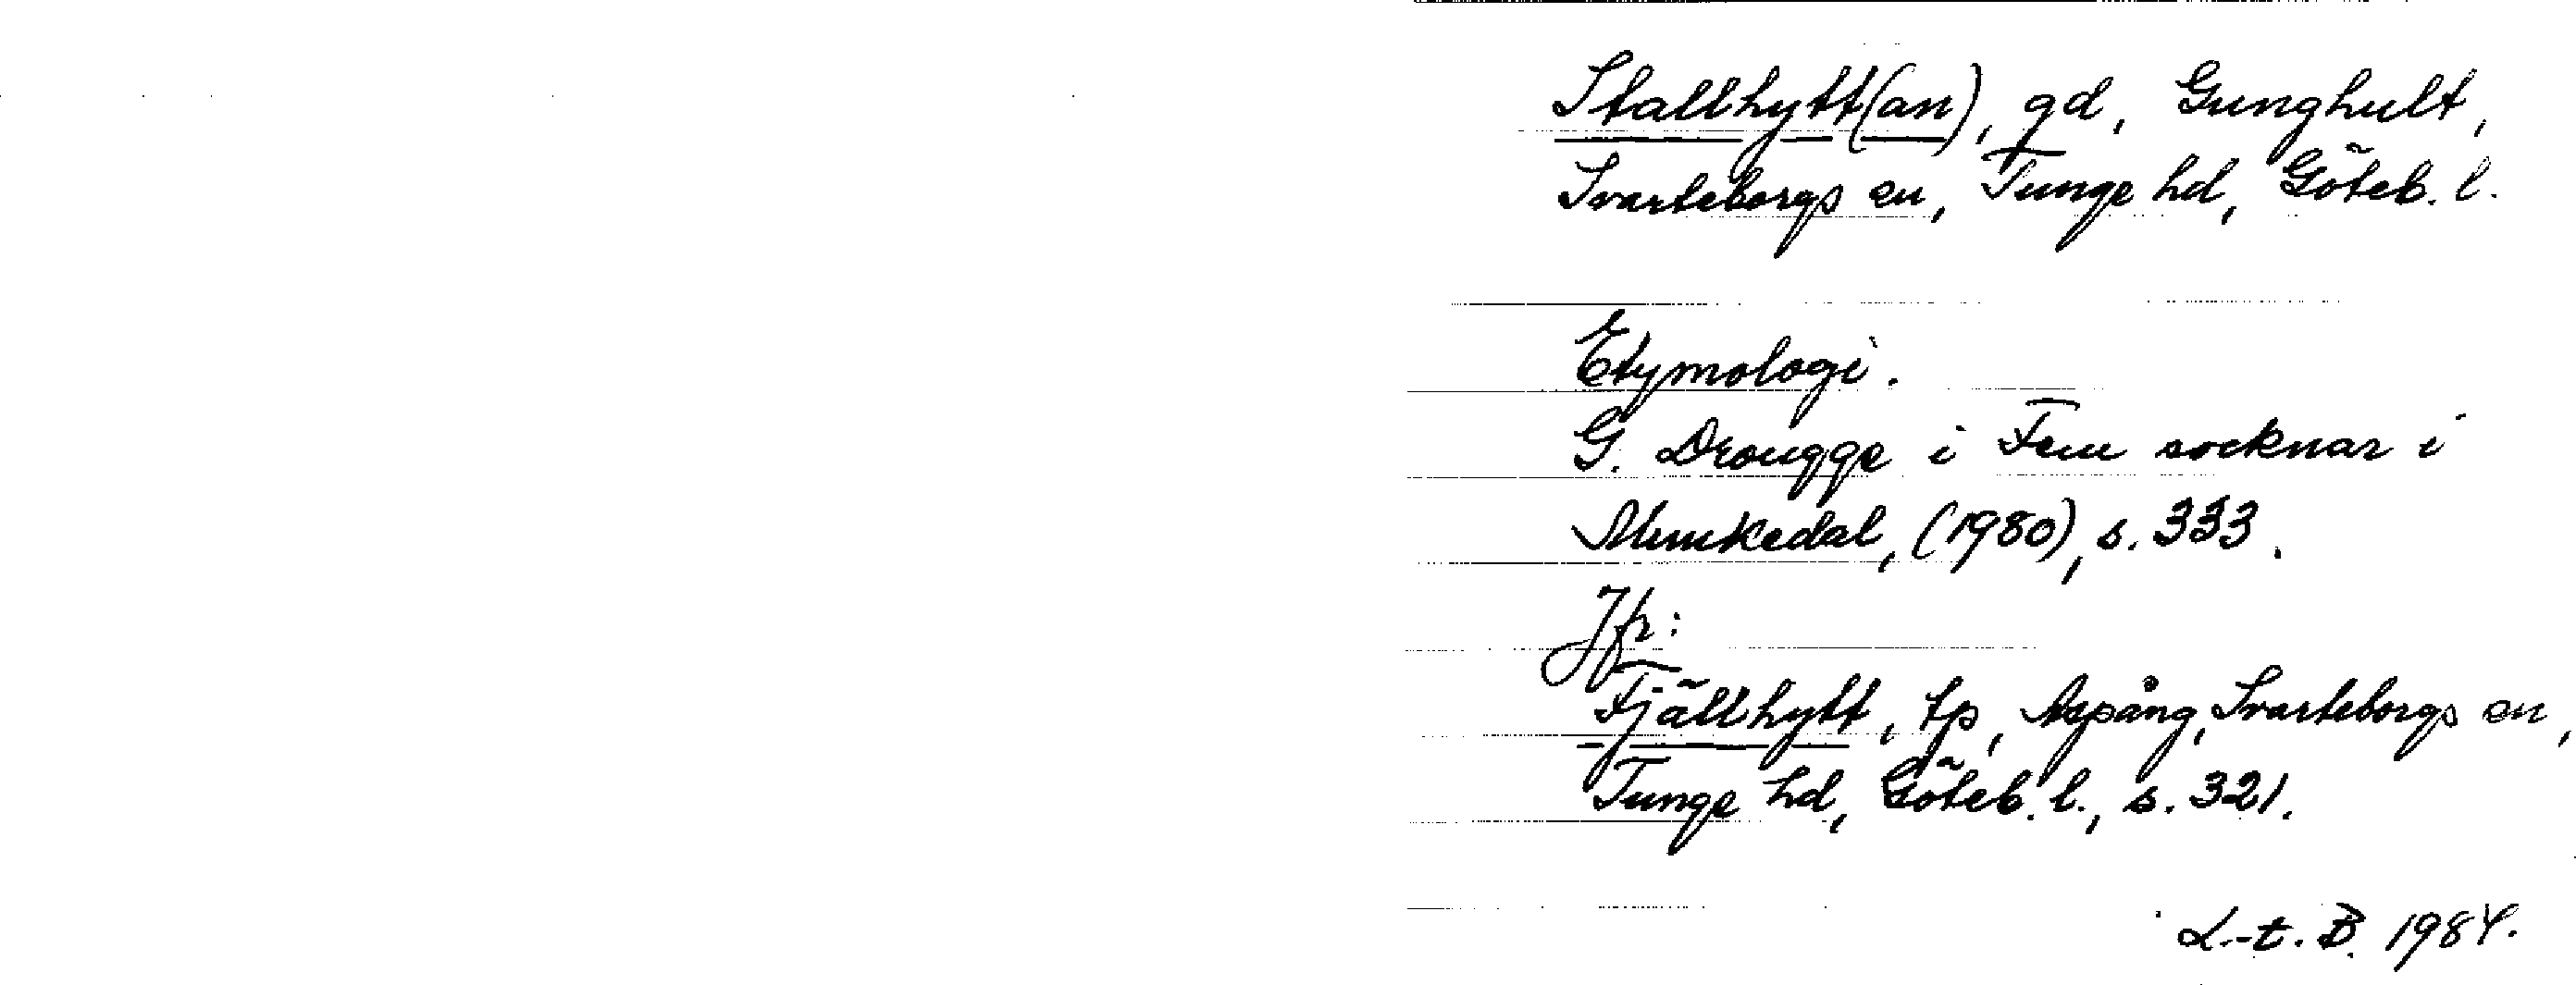 Stallhytt(an), gd, Gunghult,
Svarteborgs sn, Tunge hd, Göteb. l.
Etymologi.
G. Drougge i Fem socknar i
Munkedal, (1980), s. 333.
Jfr:
Fjällhytt, tp, Aspång, Svarteborgs sn,
Tunge hd, Göteb. l., s. 321.
L.-t. B. 1984.